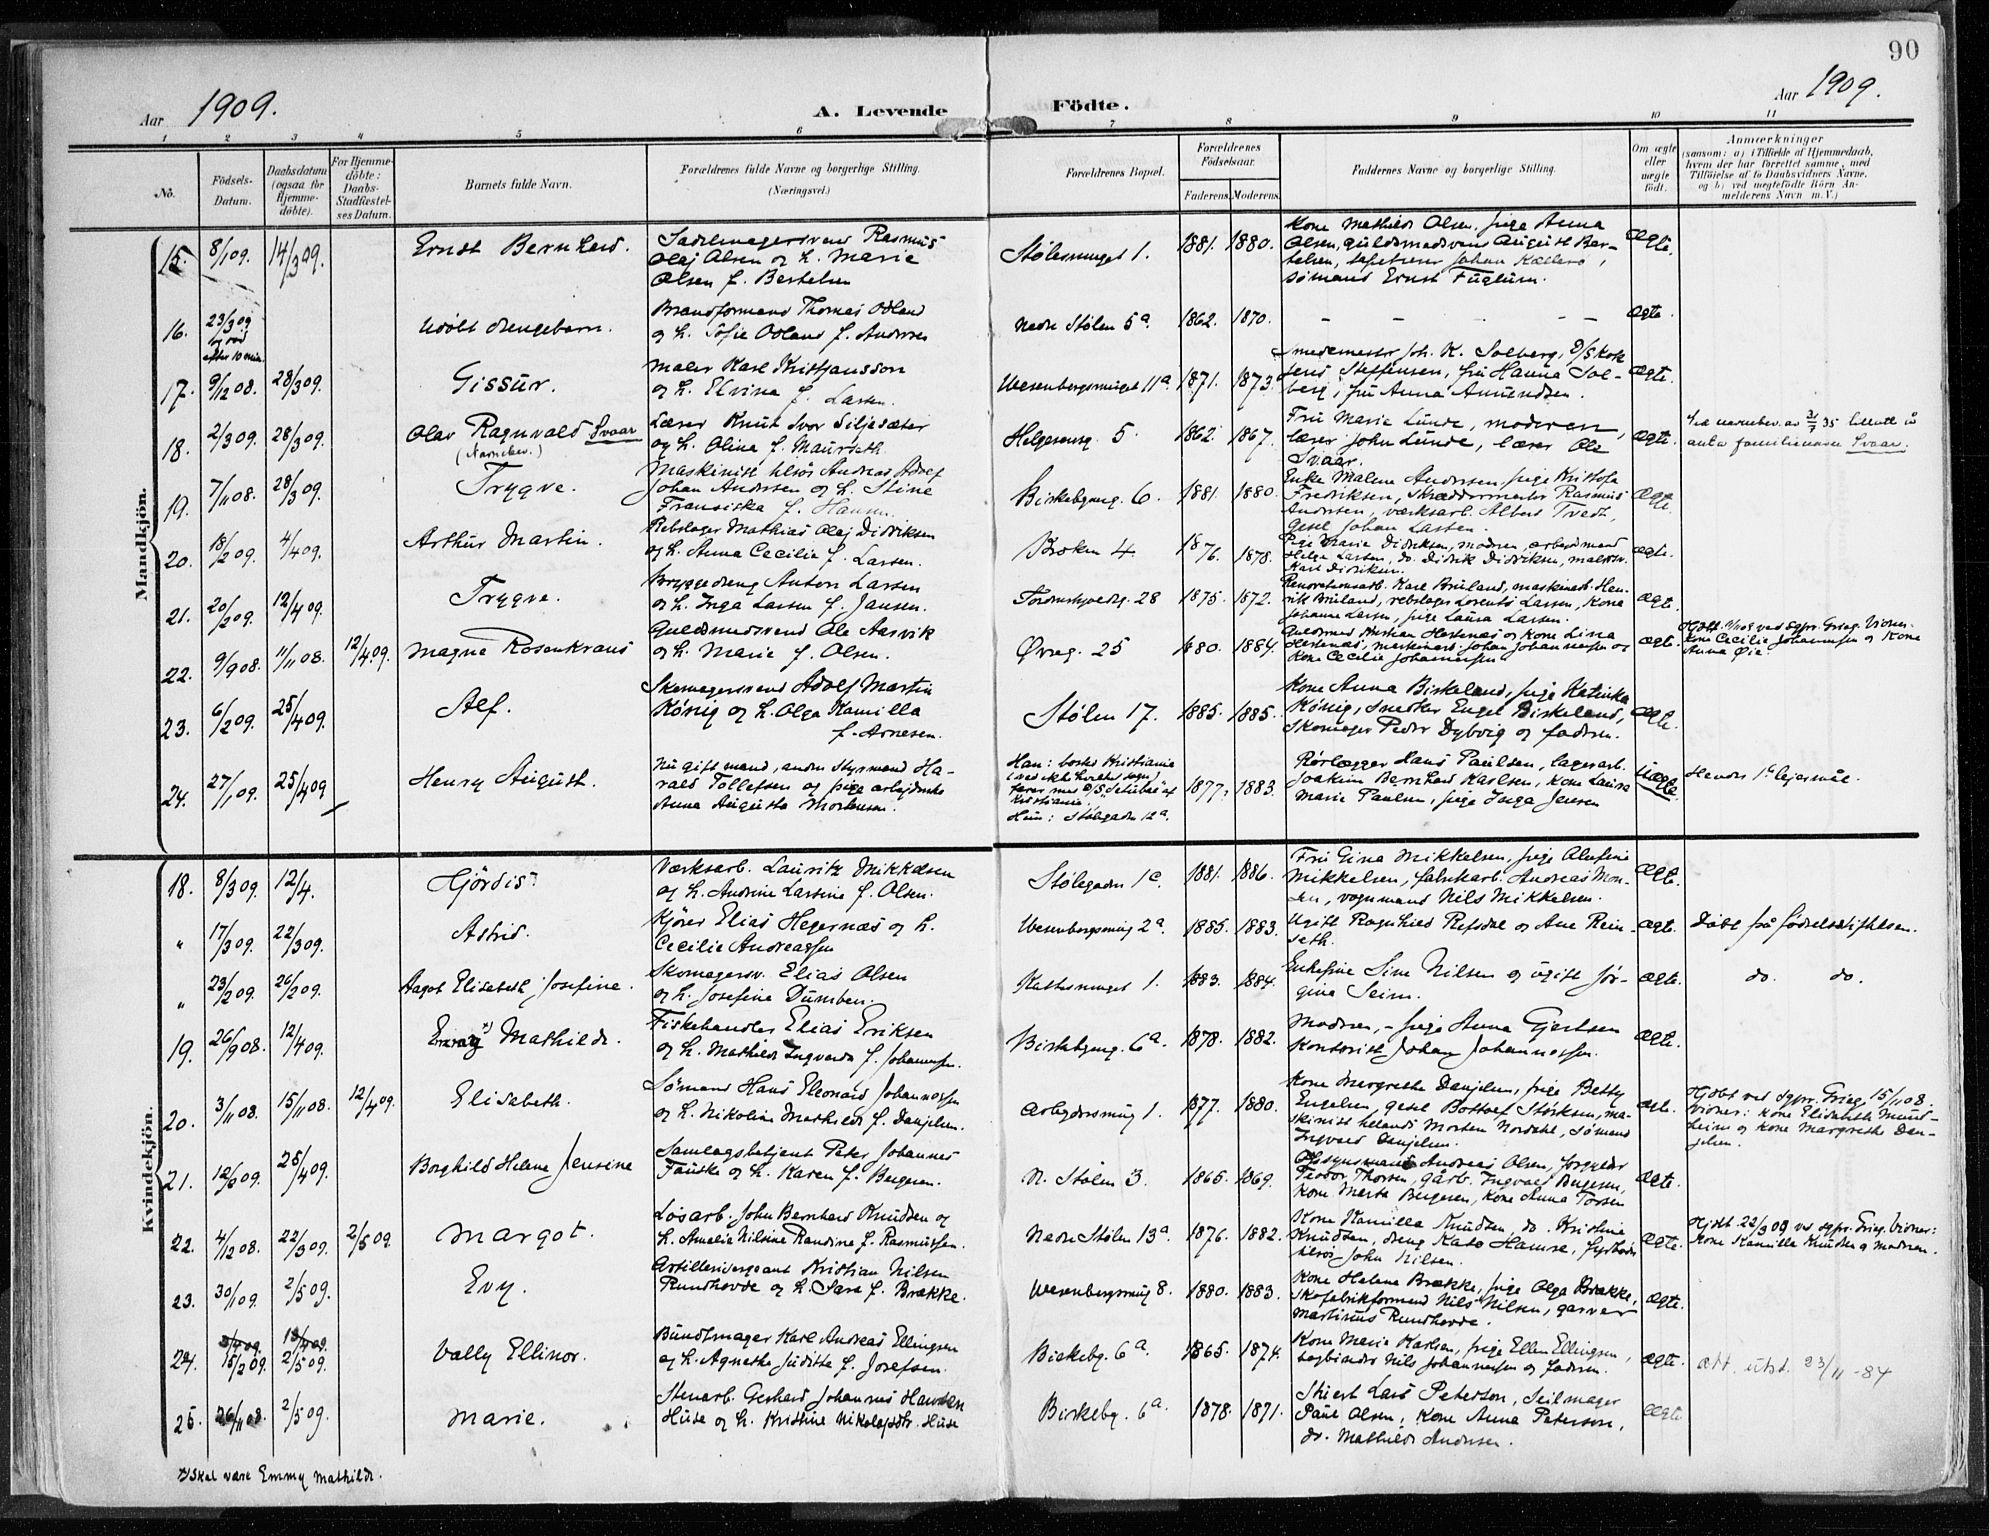 90
Aar 1909.
A. Levende Födte.
Aar 1909.
1 2 3 4 5 6 7 8 9 10 11
No.
Födsels-
Datum.
Daabsdatum
(ogsaa for
Hjemme-
döbte).
For Hjemme-
döbte:
Daabs-
Stadfæstel-
ses Datum.
Barnets fulde Navn.
Forældrenes fulde Navne og borgerlige Stilling.
(Næringsvei.)
Forældrenes Bopæl.
Forældrenes
Födselsaar.
Faderens. Moderens.
Faddernes Navne og borgerlige Stilling.
Om ægte
eller
uægte
födt.
Anmærkninger
(saasom: a) i Tilfælde af Hjemmedaab,
hvem der har forrettet samme, med
Tilföielse af to Daabsvidners Navne,
og b) ved uegtefödte Börn An-
melderens Navn m. V.)
Mandkjön.
15. 8/1 09. 14/3 09. Ernst Bernhard.
Sadelmagersvend Rasmus
Olaj Olsen og h. Marie
Olsen f. Bertelsen
Stølesmuget 1. 1881. 1880.
Kone Mathilde Olsen, pige Anna
Olsen, guldsmedsvend August Ber-
telsen, tapetserer Johan
sømand Ernst Fuglum.
ægte.
16. 23/3 09
efter 10 min. Udøbt drengebarn.
Brandformand Thomas Odland
og h. Sofie Odland f. Andersen
Nedre Stølen 5a. 1862. 1870. – – – – – ægte.
17. 9/12 08. 28/3 09. Gissur.
Maler Karl Kristjansson
og h. Elvina f. Larsen.
Wesenbergsmuget 11a. 1871. 1873.
Smedemester Joh. K. Solberg,
Jens Steffensen, fru Hanna Sol-
berg, fru Anna Amundsen.
ægte.
18. 2/3 09. 28/3 09. Olav Ragnvald Svaar
(Navnebev.)
Lærer Knut Ivor Siljesæter
og h. Olina f. Maurseth.
Helgesensg. 5. 1862. 1867.
Fru Marie Lunde, moderen,
lærer John Lunde, lærer Ole
Svaar.
ægte.
Ved navnebev. av 3/7 35 tillatt å
anta familienavn Svaar.
19. 7/11 08. 28/3 09. Trygve.
Maskinist tilsøs Andreas Adolf
Johan Andersen og h. Stine
Fransiska f. Hansen.
Birkebgung. 6. 1881. 1880.
Enke Malene Andersen, pige Kristofa
Fredriksen, skræddermester Rasmus
Andersen, værksarb. Albert Tvedt,
gesel Johan Larsen.
ægte.
20. 18/2 09. 4/4 09. Arthur Martin.
Rebslager Mathias Olaj Didriksen
og h. Anna Cecilie f. Larsen.
Kroken 4 1876. 1878.
Pige Marie Didriksen, modren, arbeidsmand
Helge Larsen, do. Didrik Didriksen, malersv.
Karl Didriksen.
ægte.
21. 20/2 09. 12/4 09. Trygve.
Bryggedreng Anton Larsen
og h. Inga Larsen f. Jansen.
Tordenskjoldsg. 28 1875. 1872.
Renovationsarb. Karl Bruland, maskinarb. Hen-
rik Bruland, rebslager Lorentz Larsen, kone
Johanne Larsen, pige Laura Larsen.
ægte.
22. 9/9 08. 11/11 08. 12/4 09. Magne Rosenkrans
Guldsmedsvend Ole Aarvik
og h. Marie f. Olsen.
Øvreg. 25 1880. 1884.
Guldsmed Kristian Hestenæs og kone Lina
Hestenæs, maskinarb. Johan Johannessen og
kone Cecilie Johannessen
ægte.
Hjdbt. 11/11 08 ved sgpr. Grieg. Vidner:
kone Cecilie Johannessen og kone
Anna Øie.
23. 6/2 09. 25/4 09. Alf.
Skomagersvend Adolf Martin
König og h. Olga Kamilla
f. Arnesen.
Stølen 17. 1885. 1885.
Kone Anna Birkeland, pige Katinka
König, snedker Engel Birkeland,
skomager Peder Dybvig og fadren.
ægte.
24. 27/1 09. 25/4 09 Henry August.
Nu gift mand, anden styrmand Ha-
rald Tollefsen og pige arbejderske
Anna Augusta Mortensen.
Han: bosted Kristiania
farer med D/S.
Kristiania.
Hun: Stølegaden 12a.
1877. 1883.
Rørlægger Hans Paulsen, lagerarb.
Joakim Bernhard Karlsen, kone Laura
Marie Paulsen, pige Inga Jensen
Uægte.
Hendes 1ste lejermål.
Kvindekjön.
18. 8/3 09. 12/4. Hjördis.
Værksarb. Lauritz Mikkelsen
og h. Andrine Larsine f. Olsen.
Stølegaden 1c. 1881. 1886.
Fru Gina Mikkelsen, pige Alufine
Mikkelsen, fabrikarb. Andreas Mon-
sen, vognmand Nils Mikkelsen.
ægte.
" 17/3 09. 22/3 09. Astrid.
Kjører Elias Hegernæs og h.
Cecilie Andreassen
Wesenbergsmug 2a. 1885. 1883.
Ugift Ragnhild Refsdal og Ane Rein-
seth.
ægte. Døbt på fødselsstiftelsen.
" 23/2 09. 26/2 09. Aagot Elisabeth Josefine.
Skomagersv. Elias Olsen
og h. Josefine Dumben.
Kattesmuget 1. 1883. 1884.
Enkefrue Sine Nilsen og ugift Jør-
gine Seim.
ægte. do. do.
19. 26/9 08. 12/4 09. Emmy x) Mathilde.
Fiskehandler Elias Eriksen
og h. Mathilde Ingvarda f. Johannesen.
Birkebgung. 6a. 1878. 1882.
Modren, – pige Anna Gjertsen
Kontorist Johan Johannessen.
ægte.
20. 3/11 08. 15/11 08. 12/4 09. Elisabeth.
Sømand Hans Eleonard Johannessen
og h. Nikoline Mathilde f. Danjelsen.
Arbejdersmug 1. 1877. 1880.
Kone Margrethe Danjelsen, pige Betty
Engelsen, gesel Bottolf Størksen, ma-
skinist tillands Morten Nordahl, sømand
Ingvald Danjelsen.
ægte.
Hjdbt ved sgpr. Grieg 15/11 08.
Vidner: kone Elisabeth Mund-
heim og kone Margrethe Dan-
jelsen.
21. 12/2 09. 25/4 09. Borghild Helene Jensine
Samlagsbetjent Peter Johannes
Fauske og h. Karen f. Bergesen.
N. Stølen 3. 1865. 1869.
Opsynsmand Andreas Olsen, forgylder
Teodor Thorsen, gårb. Ingvald Bergesen,
kone Marta Bergesen, kone Anna Torsen
ægte.
22. 4/12 08. 22/3 09. 2/5 09. Margot.
Løsarb. John Bernhard Knudsen og
h. Amalia Nilsine Randine f. Rasmussen.
Nedre Stølen 13a. 1876. 1882.
Kone Kamilla Knudsen, do. Kristine
Knudsen, dreng Kato Hamre, fyrbøder
tilsøs John Nilsen.
ægte.
Hjdbt 22/3 09 ved sgpr. Grieg. Vidner:
kone Kamilla Knudsen og modren.
23. 30/1 09. 2/5 09. Evy.
Artillerisergeant Kristian Nilsen
Rundhovde og h. Sara f. Brække.
Wesenbergsmug 8. 1880. 1883.
Kone Helene Brække, pige Olga Brække,
skofabrikformand Nils Nilsen, garver
Martinus Rundhovde.
ægte.
24. 15/2 09. 2/5 09. Vally Ellinor.
Bundtmager Karl Andreas Ellingsen
og h. Agnethe Juditte f. Josefsen.
Birkebg. 6a. 1865. 1874.
Kone Marie Karlsen, pige Ellen Ellingsen,
bogbinder Nils Johannessen og fadren.
ægte. att. utst. 23/11-84
25. 26/11 08. 2/5 09. Marie.
Stenarb. Gerhard Johannes Hansen
Huse og h. Kristine Nikolajsdtr. Huse
Birkebg. 6a. 1878. 1871.
Skibert Lars Peterson, seilmager
Paul Olsen, kone Anna Peterson,
do. Mathilde Andersen.
ægte
x) Skal være Emmy Mathilde.